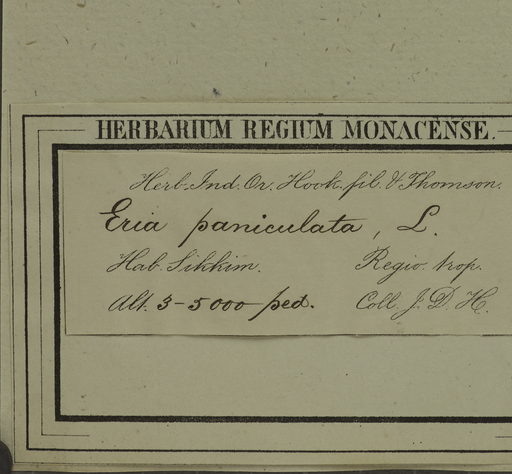 HERBARIUM REGIUM MONACENSE.
Herb. Ind. Or. Hook. fil. & Thomson.
Eria paniculata, L.
Hab. Sikkim. Regio. trop.
Alt. 3-5000 ped. Coll. J. D. H.